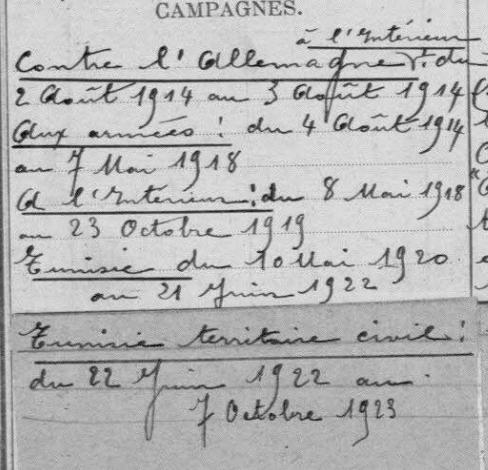 CAMPAGNES.
à l'Intérieur
Contre l'Allemagne : du
2 Août 1914 au 3 Août 1914
Aux armées : du 4 Août 1914
au 7 Mai 1918
A l'Intérieur : du 8 Mai 1918
au 23 Octobre 1919
Tunisie du 10 Mai 1920
au 21 Juin 1922
Tunisie territoire civil :
du 22 Juin 1922 au
7 Octobre 1923